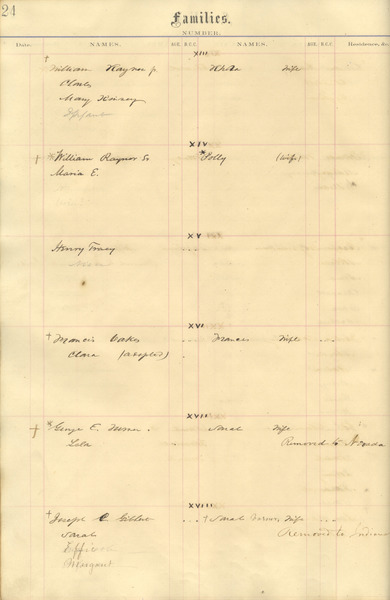 24
Families.
NUMBER.
Date. NAMES. NAMES. Residence, &c.
XIII
† William Raynor Jr Wife
Charles
Mary
Infant
XIV
† *William Raynor Sr *Polly (Wife)
Maria E.
XV
Henry Tracy ...
XVI
† Francis Oakes ... Frances Wife ...
Clara (adopted)
XVII
† *George E. Sarah Wife
Lela Removed to Nevada
XVIII
† Joseph C. Gilbert ... † Sarah Wife ...
Sarah Removed to Indiana
Margaret